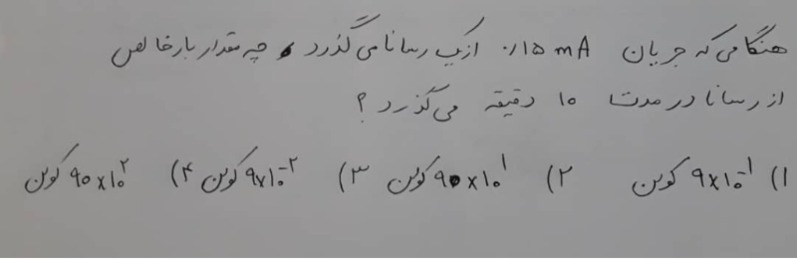 هنگامی که جریان ۰/۱۵ mA از یک رسانا می گذرد، چه مقدار بار خالص
از رسانا در مدت ۱۰ دقیقه می گذرد ؟
۱) ۹×۱۰⁻¹ کولن ۲) ۹۰×۱۰¹ کولن ۳) ۹×۱۰⁻² کولن ۴) ۹۰×۱۰² کولن